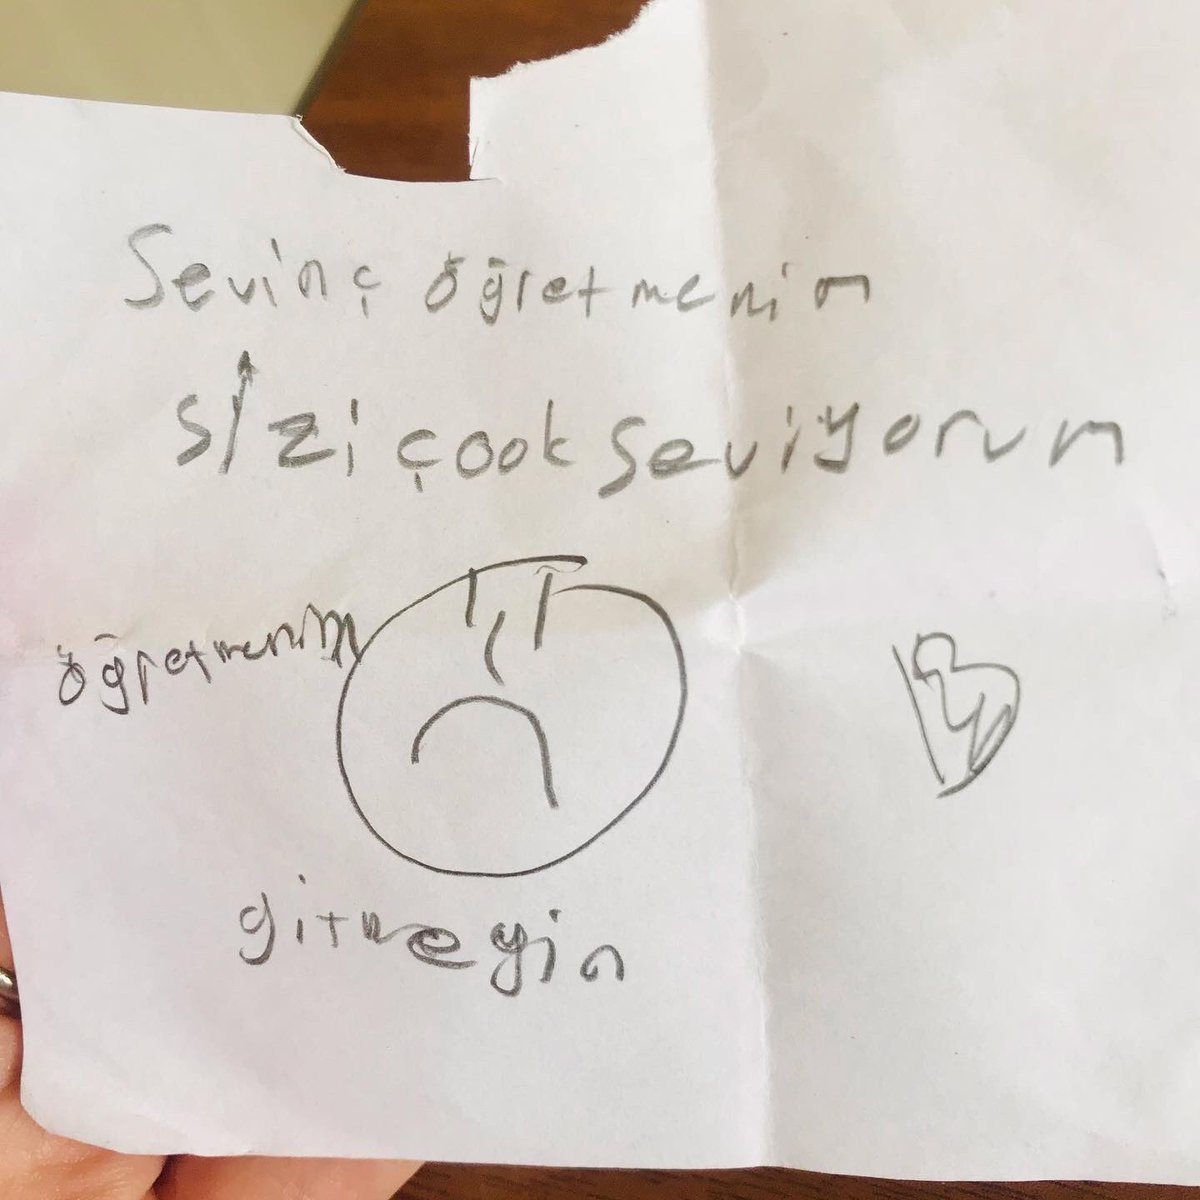 Sevinç öğretmenim
sizi çook seviyorum
öğretmenim
gitmeyin